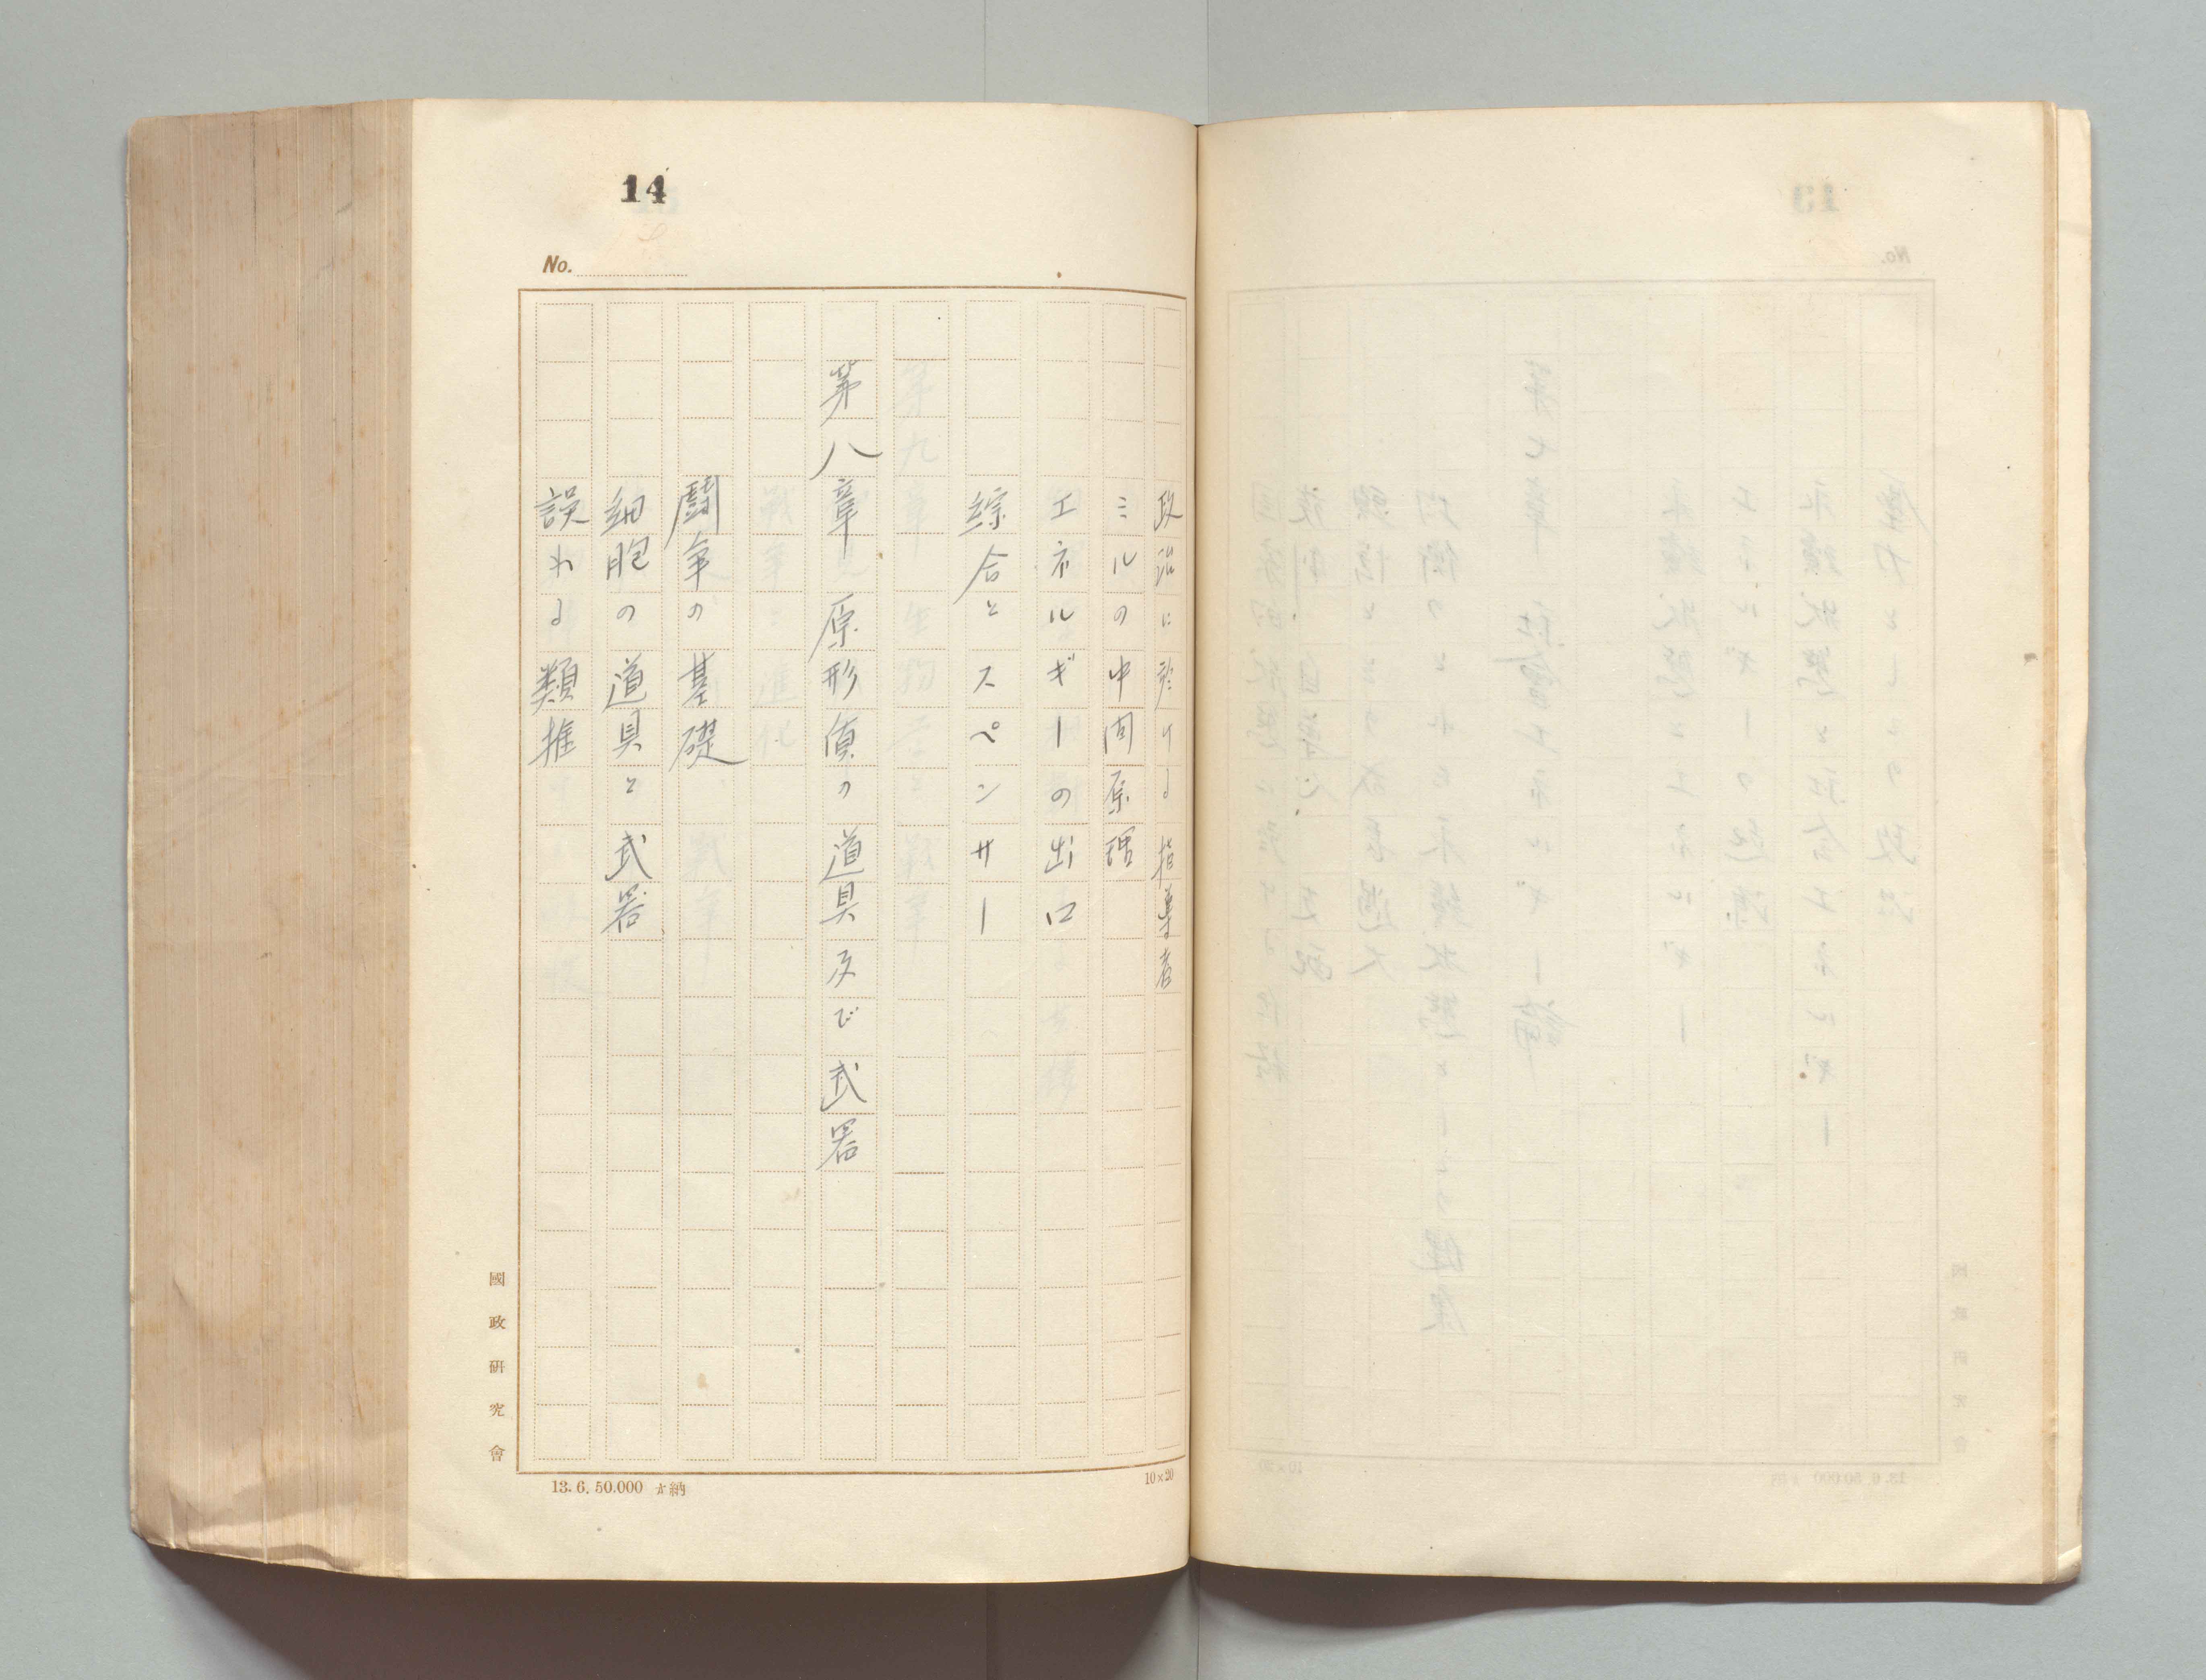 14
No.
政治に於ける指導者
ミルの中間原理
エネルギーの出口
綜合とスペンサー
第八章 原形質の道具及び武器
闘争の基礎
細胞の道具と武器
誤れる類推
國政研究會
13.6.50.000 納
10×20